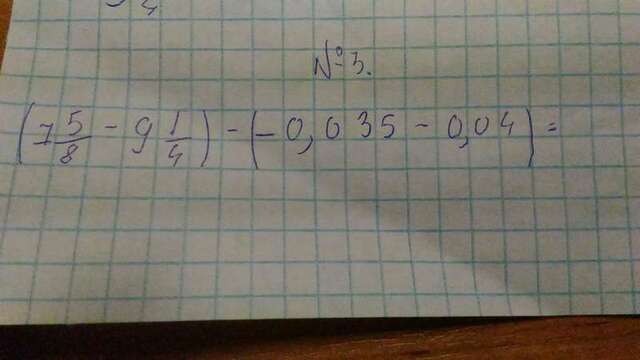 №3.
(7 5/8 - 9 1/4) - (-0,035 - 0,04) =